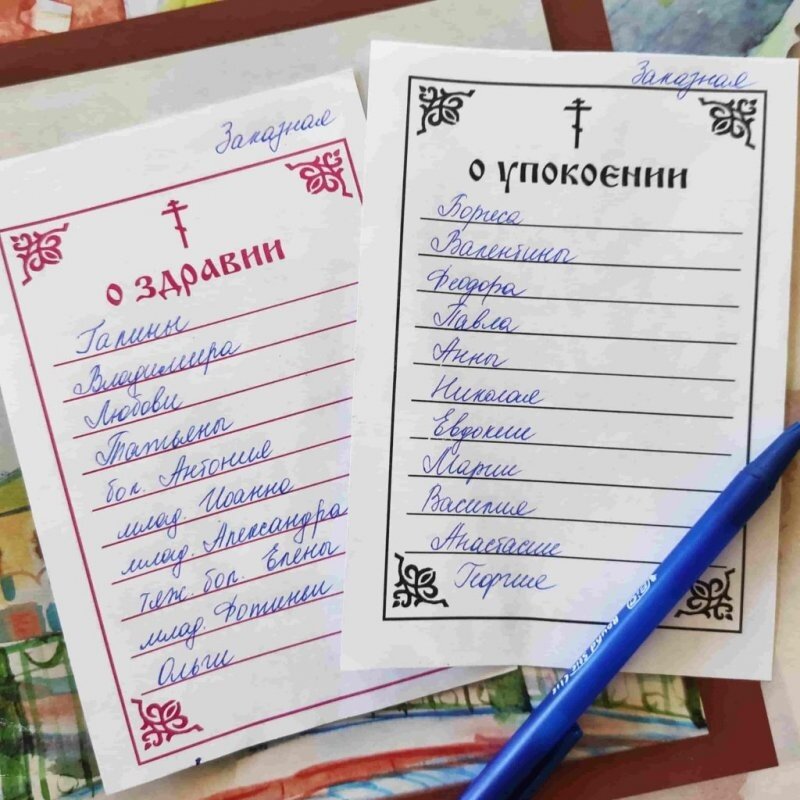 Заказная
о здравии
Галины
Владимира
Любови
Татьяны
бол. Антония
млад. Иоанна
млад. Александра
тяж. бол. Елены
млад. Фотиньи
Ольги
Заказная
о упокоєнии
Бориса
Валентины
Феодора
Павла
Анны
Николая
Евдокии
Марии
Василия
Анастасии
Георгия